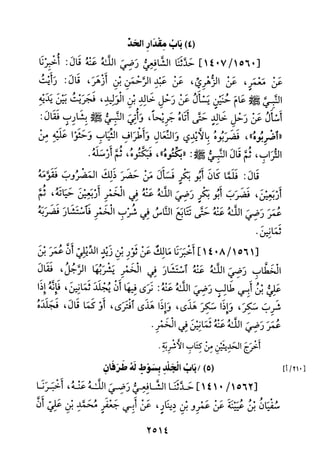 (٤) بَابُ مِقْدَارِ الحَدِّ
[١٤٠٧/١٥٦٠] حَدَّثَنَا الشَّافِعِيُّ رَضِيَ اللَّهُ عَنْهُ قَالَ: أُخْبِرْنَا
عَنْ مَعْمَرٍ، عَنْ الزُّهْرِيِّ، عَنْ عَبْدِ الرَّحْمَنِ بْنِ أَزْهَرَ، قَالَ: رَأَيْتُ
النبيَّ ﷺ عَامَ حُنَيْنٍ يَسْأَلُ عَنْ رَحْلِ خَالِدِ بْنِ الْوَلِيدِ، فَجَرَيْتُ بَيْنَ يَدَيْهِ
أَسْأَلُ عَنْ رَحْلِ خَالِدٍ حَتَّى أَتَاهُ جَرِيْحاً، وَأُتِيَ النَّبِيُّ ﷺ بِشَارِبٍ فَقَالَ:
«اضْرِبُوهُ»، فَضَرَبُوهُ بِالأَيْدِي وَالنِّعَالِ وَأَطْرَافِ الثِّيَابِ وَحَثَوْا عَلَيْهِ مِنْ
التُّرَابِ، ثُمَّ قَالَ النَّبِيُّ ﷺ: «بَكِّتُوهُ»، فَبَكَّتُوهُ، ثُمَّ أَرْسَلَهُ.
قَالَ: فَلَمَّا كَانَ أَبُو بَكْرٍ فَسَأَلَ مَنْ حَضَرَ ذَلِكَ المَضْرُوبَ فَقَوَّمَهُ
أَرْبَعِيْنَ، فَضَرَبَ أَبُو بَكْرٍ رَضِيَ اللَّهُ عَنْهُ فِي الْخَمْرِ أَرْبَعِيْنَ حَيَاتَهُ، ثُمَّ
عُمَرَ رَضِيَ اللَّهُ عَنْهُ حَتَّى تَتَابَعَ النَّاسُ فِي شُرْبِ الْخَمْرِ فَاسْتَشَارَ فَضَرَبَهُ
ثَمَانِينَ.
[١٤٠٨/١٥٦١] أَخْبَرَنَا مَالِكٌ عَنْ ثَوْرِ بْنِ زَيْدٍ الدِّيْلِيِّ أَنَّ عُمَرَ بْنَ
الْخَطَّابِ رَضِيَ اللَّهُ عَنْهُ اسْتَشَارَ فِي الْخَمْرِ يَشْرَبُهَا الرَّجُلُ، فَقَالَ
عَلِيُّ بْنُ أَبِي طَالِبٍ رَضِيَ اللَّهُ عَنْهُ: نَرَى فِيهَا أَنْ يُجْلَدَ ثَمَانِيْنَ، فَإِنَّهُ إِذَا
شَرِبَ سَكِرَ، وَإِذَا سَكِرَ هَذَى، وَإِذَا هَذَى افْتَرَى، أَوْ كَمَا قَالَ، فَجَلَدَهُ
عُمَرَ رَضِيَ اللَّهُ عَنْهُ ثَمَانِيْنَ فِي الْخَمْرِ.
أَخْرَجَ الحَدِيْثَيْنِ مِنْ كِتَابِ الأَشْرِبَةِ.
(٥) بَابُ الْجَلْدِ بِسَوْطٍ لَهُ طَرَفَانِ
[١٤١٠/١٥٦٢] حَدَّثَنَا الشَّافِعِيُّ رَضِيَ اللَّهُ عَنْهُ، أَخْبَرَنَا [٢١٠/أ]
سُفْيَانُ بْنُ عُيَيْنَةَ عَنْ عَمْرِو بْنِ دِينَارٍ، عَنْ أَبِي جَعْفَرٍ مُحَمَّدِ بْنِ عَلِيٍّ أَنَّ
٢٥١٤